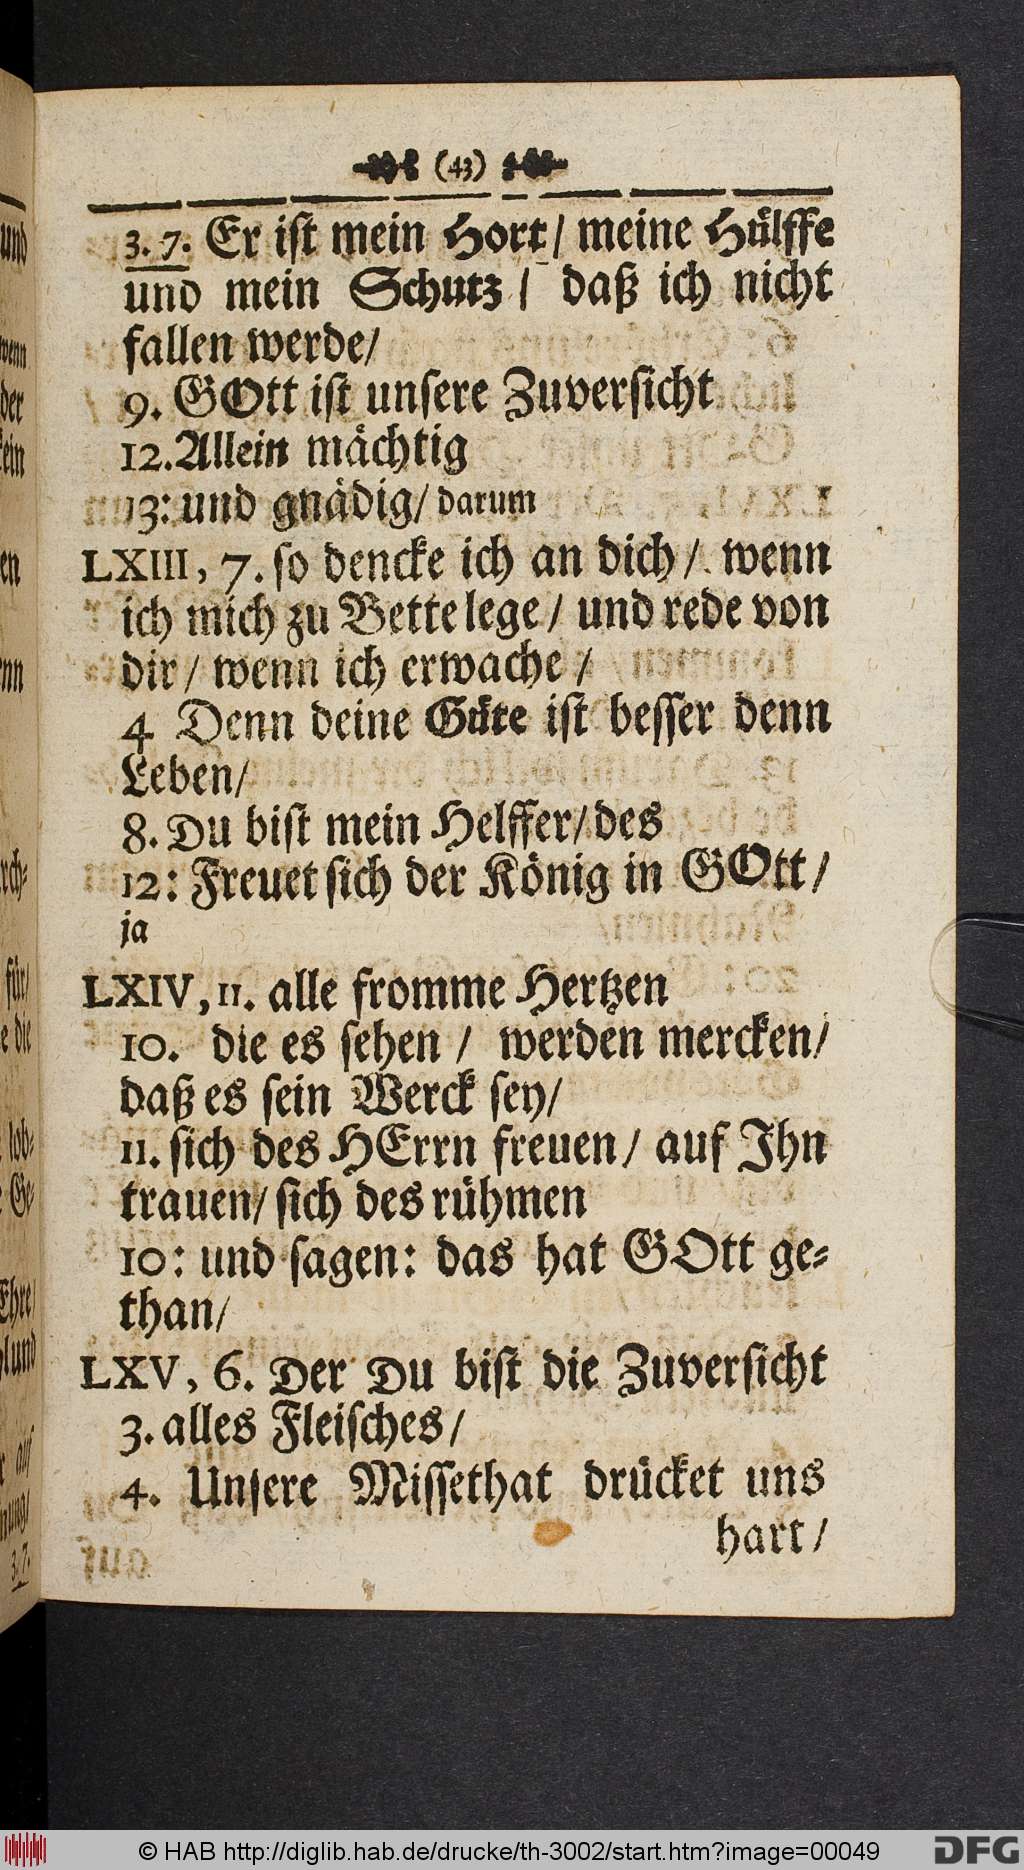 (43)
3. 7. Er ist mein Hort/ meine Hülffe
und mein Schutz / daß ich nicht
fallen werde/
9. GOtt ist unsere Zuversicht
12. Allein mächtig
13: und gnädig/ darum
LXIII, 7. so dencke ich an dich/ wenn
ich mich zu Bette lege / und rede von
dir / wenn ich erwache /
4 Denn deine Güte ist besser denn
Leben/
8. Du bist mein Helffer/ des
12: Freuet sich der König in GOtt /
ja
LXIV, 11. alle fromme Hertzen
10. die es sehen / werden mercken/
daß es sein Werck sey/
11. sich des HErrn freuen/ auf Ihn
trauen/ sich des rühmen
10: und sagen: das hat GOtt ge-
than/
LXV, 6. Der Du bist die Zuversicht
3. alles Fleisches/
4. Unsere Missethat drücket uns
hart /
© HAB http://diglib.hab.de/drucke/th-3002/start.htm?image=00049
DFG